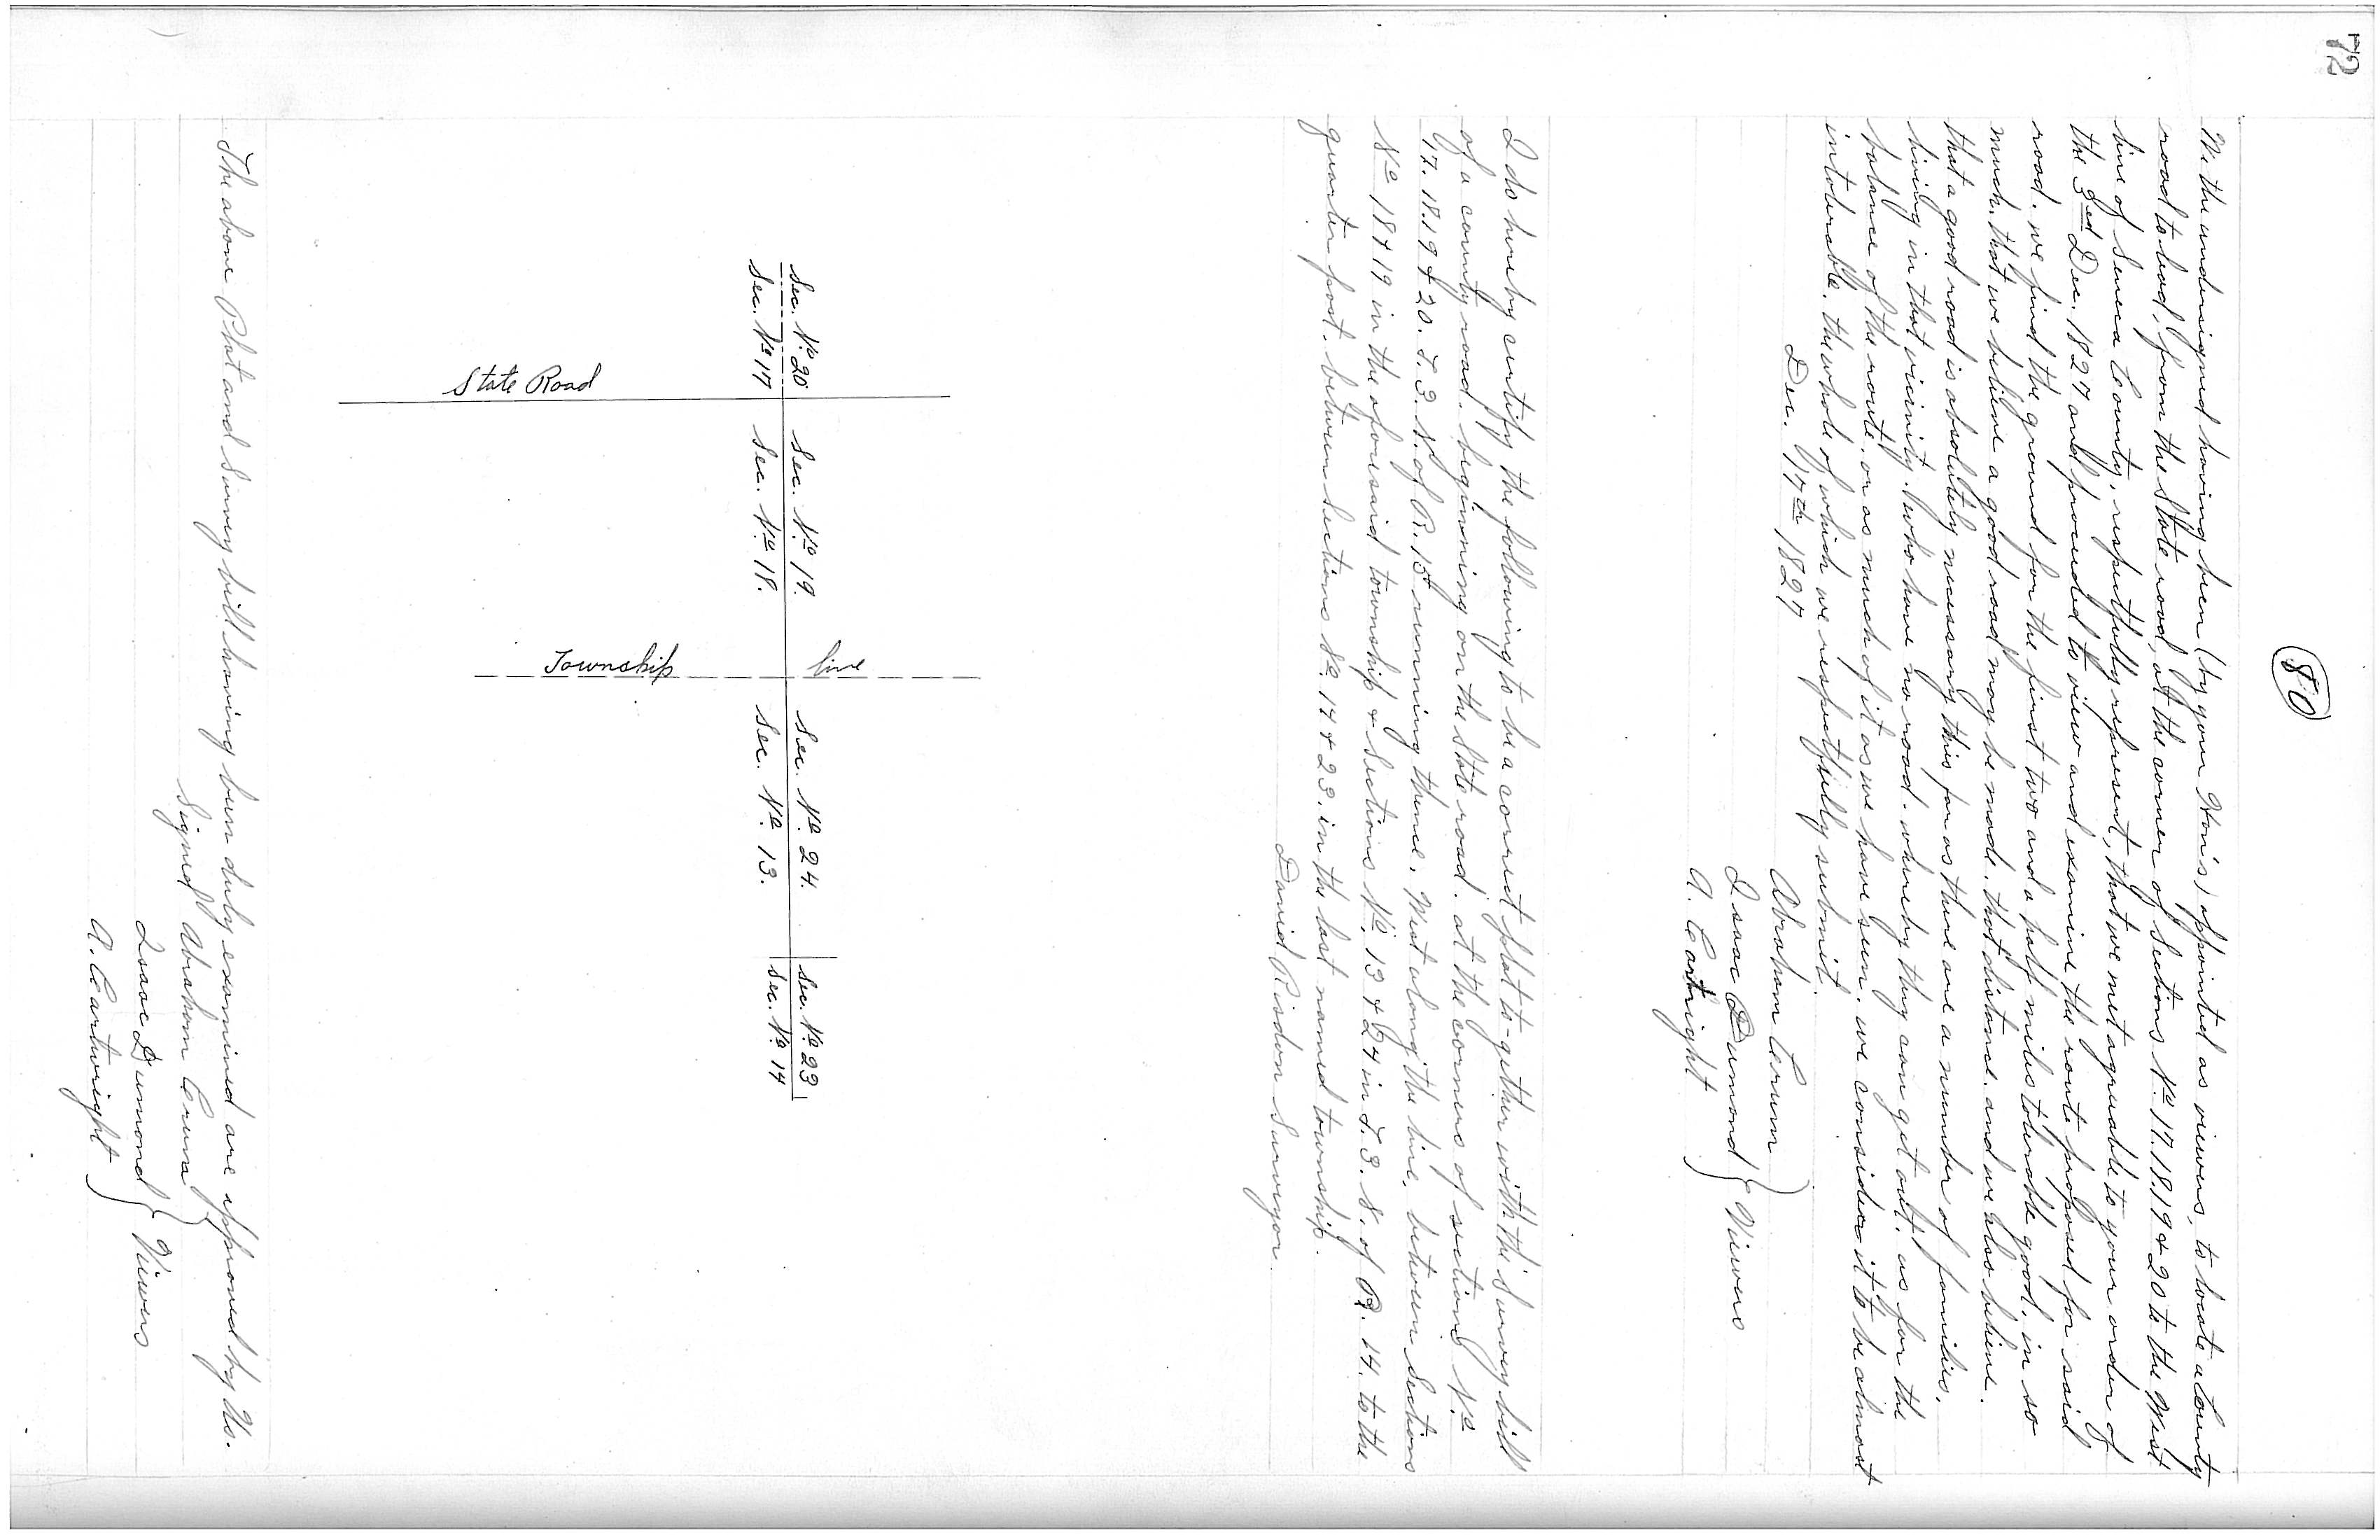 72
80
We the undersigned having been (by your Hon's) appointed as viewers, to locate a County
road to lead, from the State road, at the corner of Sections No 17. 18. 19 & 20 to the West
line of Seneca County, respectfully represent, that we met agreeable to your order of
the 3ed Dec. 1827 and proceeded to view and examine the route proposed for said
road. we find the ground for the first two and a half miles tolerable good. in so
much. that we believe a good road may be made. that distance. and we also believe.
that a good road is absolutely necessary this far as there are a number of families.
living in that vicinity. who have no road. whereby they can get out. as for the
balance of the route. or as much of it as we have seen. we consider it to be almost
intolerable. the whole of which we respectfully submit.
Dec. 17th 1827
Abraham Crum
Isaac Dumond } Viewers
A. Cartright
I do hereby certify the following to be a correct plat to-gether with the Survey bill
of a county road. beginning on the State road. at the corners of sections No
17. 18. 19 & 20. T. 3. N. of R. 15 running thence. West along the line, between Sections
No 18 & 19 in the aforesaid township & Sections No. 13 & 24 in T. 3. N. of R. 14. to the
quarter post. between Sections No. 14 & 23. in the last named township.
David Risdon Surveyor.
Sec. No. 20 Sec. No 19. Sec. No. 24. Sec. No. 23
Sec. No 17 Sec. No 18. Sec. No. 13. Sec. No. 14
State Road
Township line
The above Plat and Survey bill having been duly examined are approved by Us.
Signed Abraham Crum
Isaac Dumond } Viewers
A. Cartwright